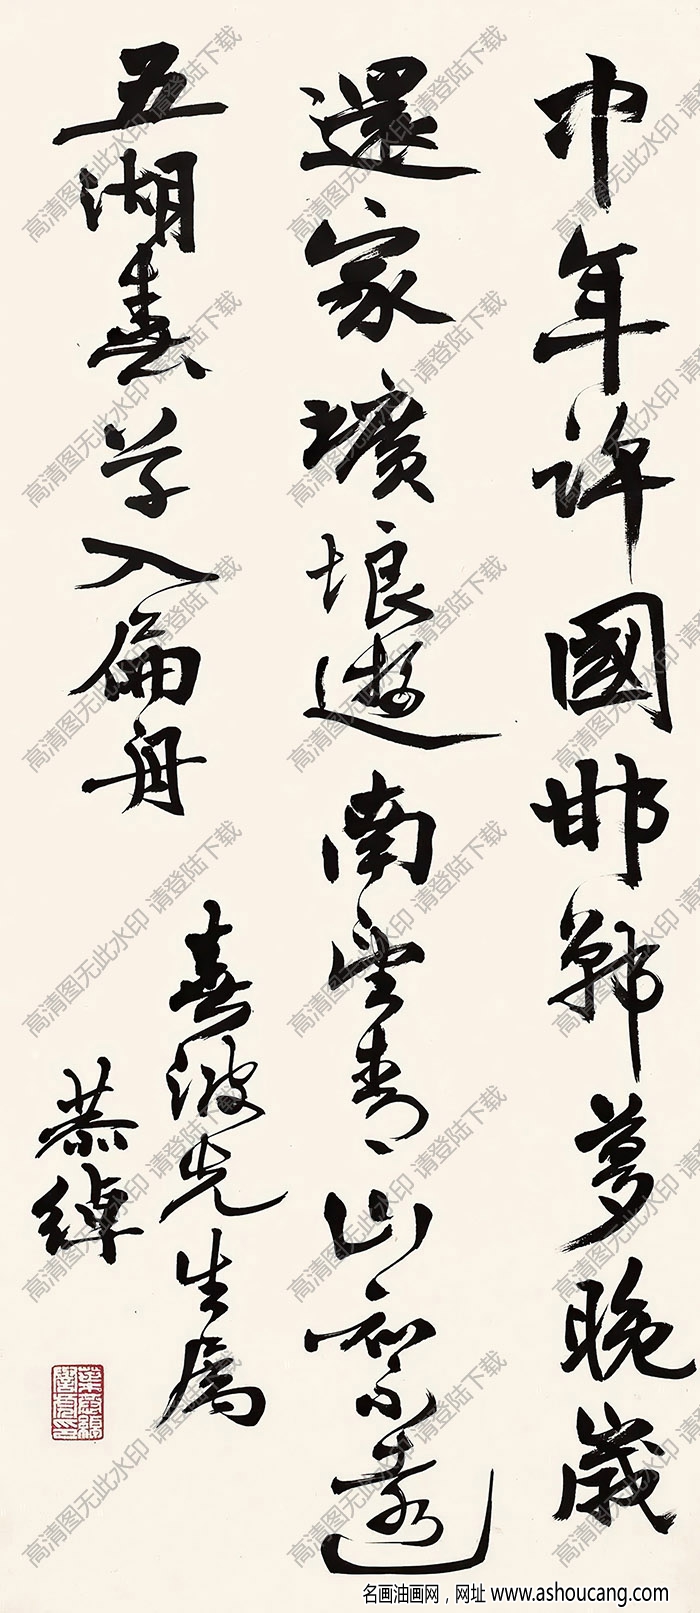 中年許國邯鄲夢晚歲
還家壙埌遊南望青山知不遠
五湖春草入偏舟
波先生屬
恭綽
葉恭綽譽虎印
高清图无此水印 请登陆下载
名画油画网，网址 www.ashoucang.com